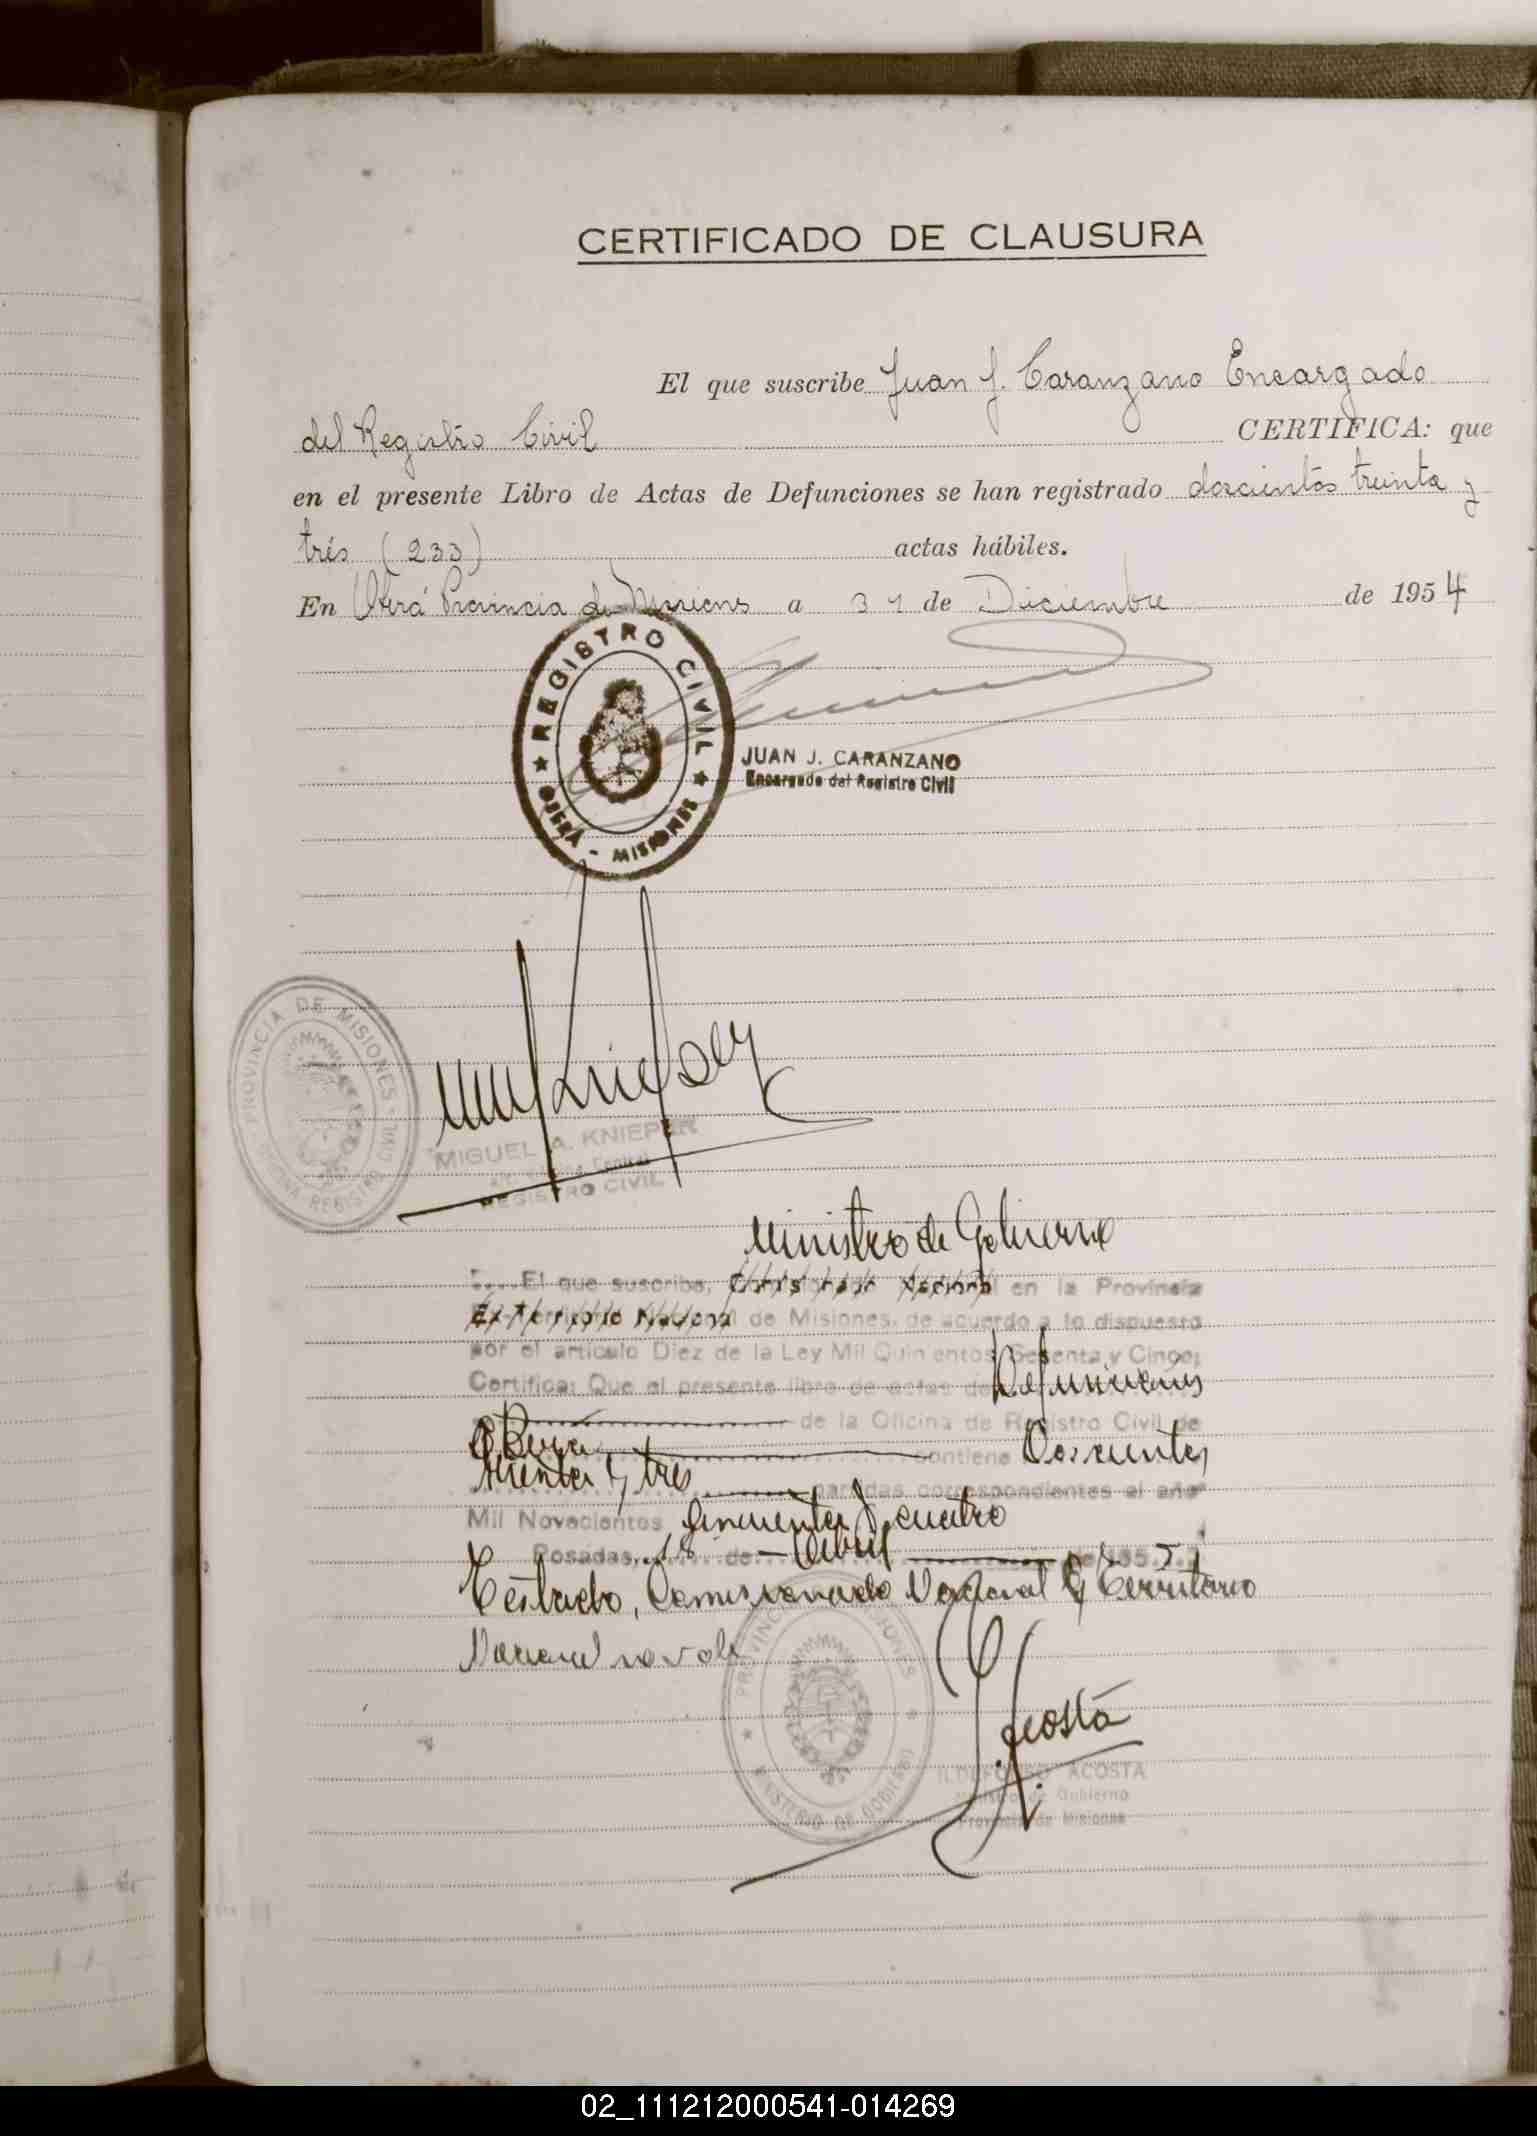 CERTIFICADO DE CLAUSURA
El que suscribe Juan J. Caranzano Encargado
del Registro Civil CERTIFICA: que
en el presente Libro de Actas de Defunciones se han registrado doscientos treinta y
trés (233) actas hábiles.
En Oberá Provincia de Misiones a 31 de Diciembre de 1954
REGISTRO CIVIL
OBERÁ - MISIONES
JUAN J. CARANZANO
Encargado del Registro Civil
PROVINCIA DE MISIONES - CIVIL
OFICINA REGISTRO
MIGUEL A. KNIEPER
REGISTRO CIVIL
Ministro de Gobierno
El que suscribe, Comisionado Nacional en la Provincia
Ex-Territorio Nacional de Misiones, de acuerdo a lo dispuesto
por el artículo Diez de la Ley Mil Quinientos Sesenta y Cinco;
Certifica: Que el presente libro de actas de Defunciones
de la Oficina de Registro Civil de
Obera contiene Doscientos
treinta y tres partidas correspondientes al año
Mil Novecientos cincuenta y cuatro
Posadas, 18 de Abril de 195
Testado, Comisionado Nacional Ex Territorio
Nacional no vale
PROVINCIA DE MISIONES
MINISTERIO DE GOBIERNO
Acosta
ILDEFONSO ACOSTA
Ministro de Gobierno
Provincia de Misiones
02_111212000541-014269